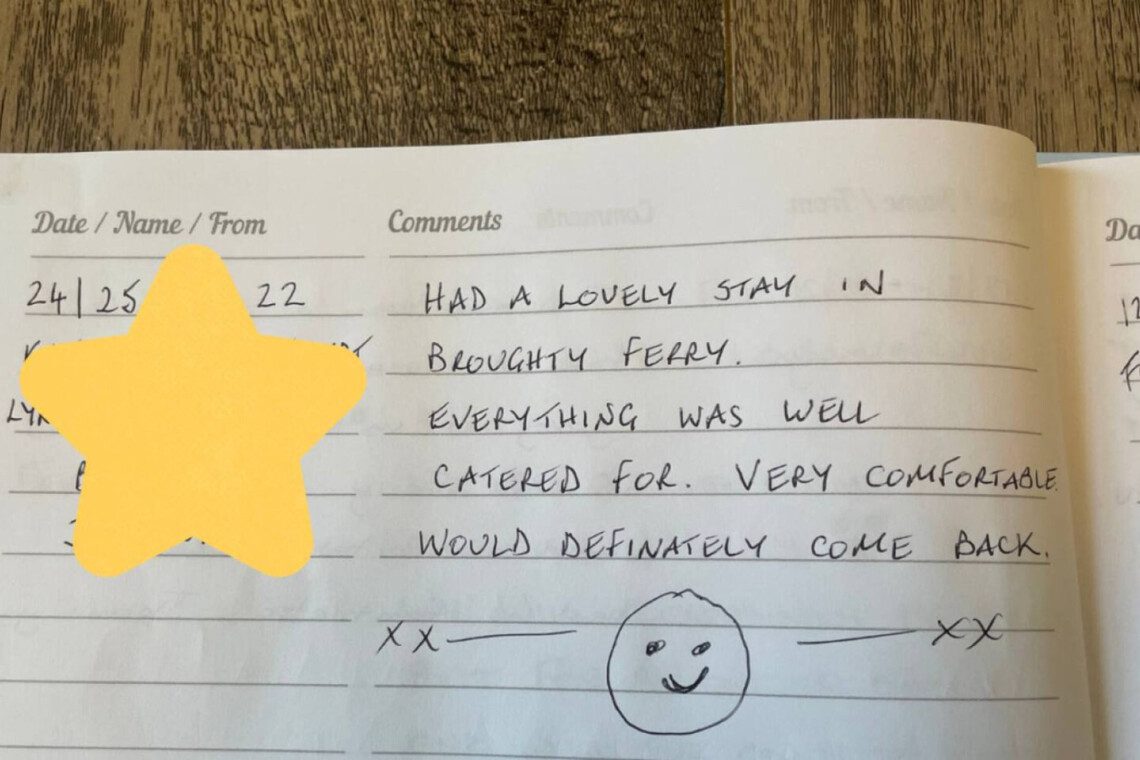 Date / Name / From
Comments
24|25 22
HAD A LOVELY STAY IN
BROUGHTY FERRY.
EVERYTHING WAS WELL
CATERED FOR. VERY COMFORTABLE.
WOULD DEFINATELY COME BACK.
XX XX